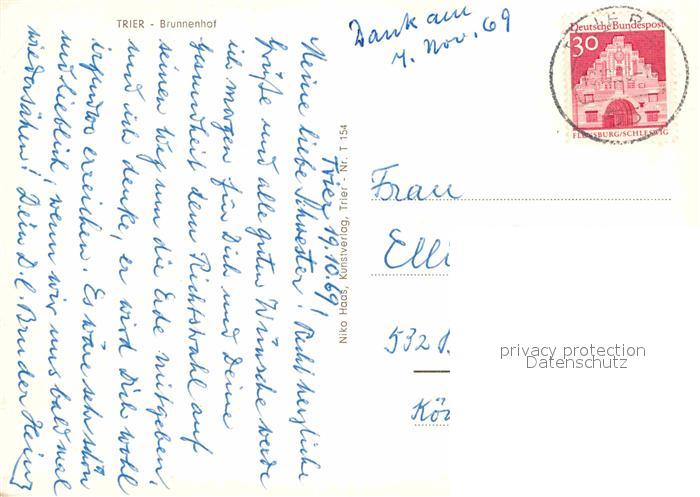 TRIER - Brunnenhof
Dank am
7. Nov. 69
TRIER
Deutsche Bundespost
30
FLENSBURG/SCHLESWIG
Niko Haas, Kunstverlag, Trier - Nr. T 154
Trier 19.10.69!
Meine liebe Schwester! Recht herzliche
Grüße und alle guten Wünsche werde
ich morgen für Dich und Deine
Gesundheit dem
seinen Weg um die Erde mitgeben,
und ich denke, er wird Dich wohl
irgendwo erreichen. Es wäre sehr schön
und lieblich, wenn wir uns bald mal
wiedersähen! Dein D.l. Bruder Heinz
Frau
Elli
532
Kö
privacy protection
Datenschutz